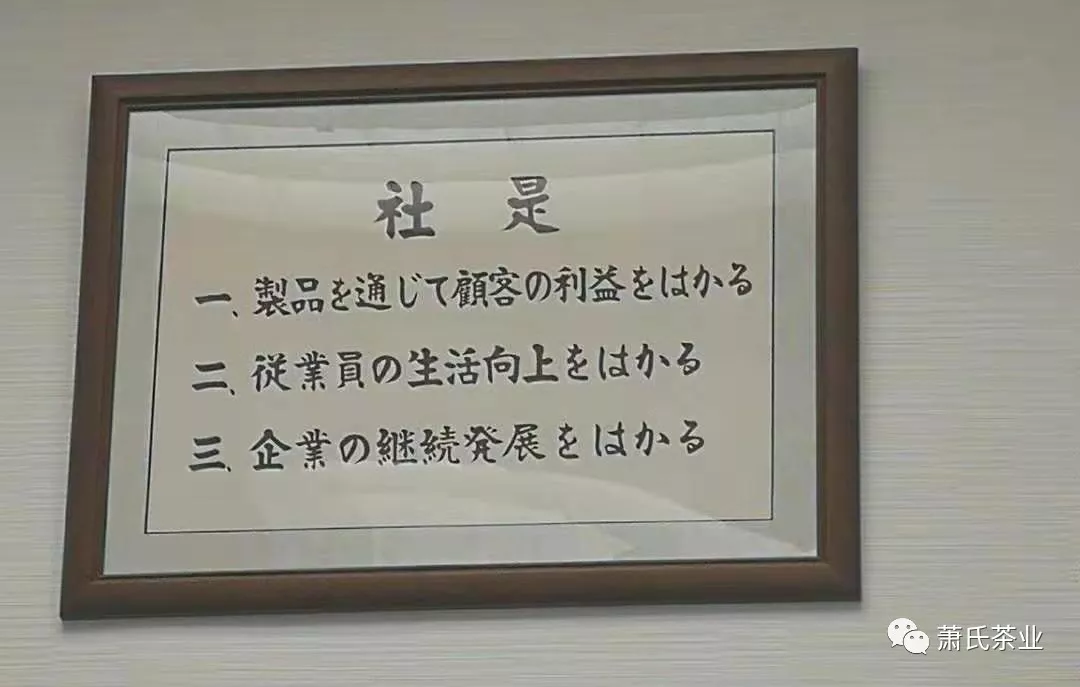 社 是
一、製品を通じて顧客の利益をはかる
二、従業員の生活向上をはかる
三、企業の継続発展をはかる
萧氏茶业